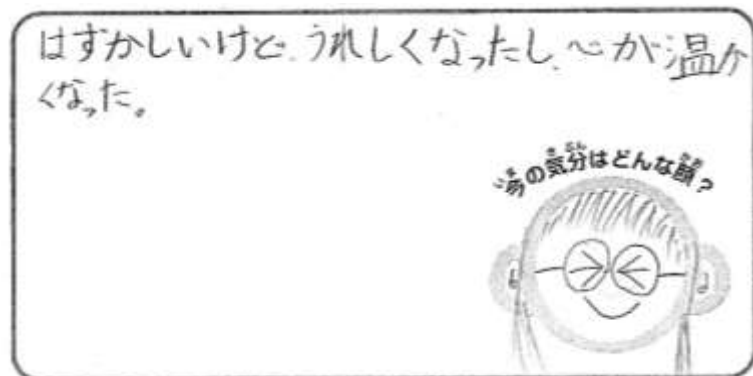 はずかしいけど、うれしくなったし、心が温か
くなった。
今の気分はどんな顔？